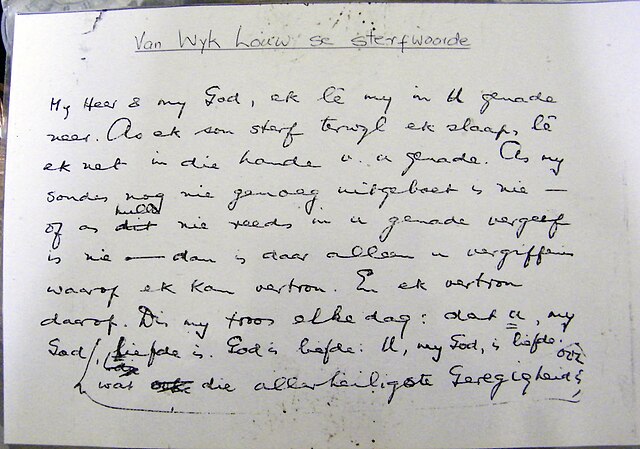 Van Wyk Louw se sterfwoorde
My Heer & my God, ek lê my in U genade
neer. As ek sou sterf terwyl ek slaap, lê
ek net in die hande v. u genade. As my
sondes nog nie genoeg uitgeboet is nie —
of as dit hulle nie reeds in u genade vergeef
is nie — dan is daar alleen u vergiffenis
waarop ek kan vertrou. En ek vertrou
daarop. Dis my troos elke dag: dat u, my
God, liefde is. God is liefde: U, my God, is liefde.
wat die allerheiligste Geregtigheid is,